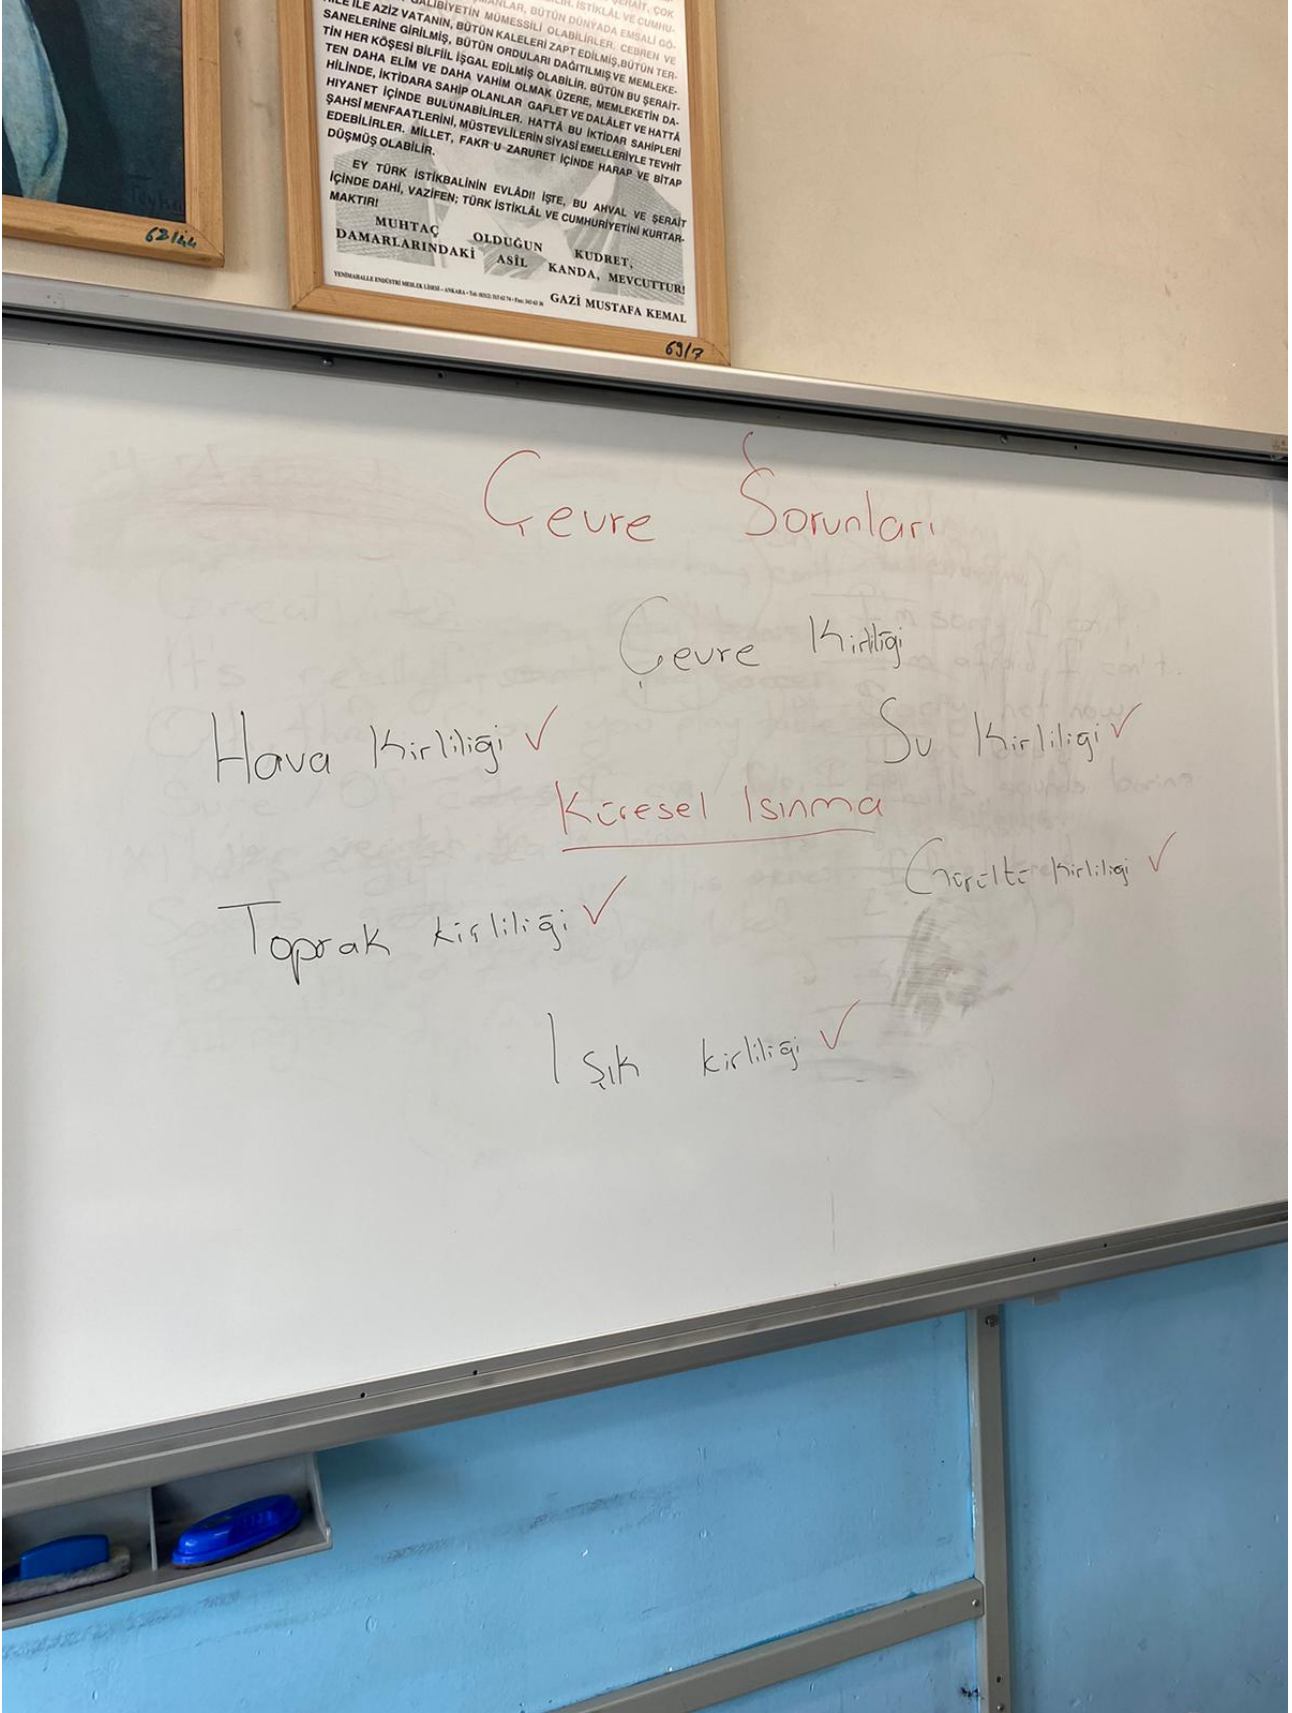 GALİBİYETİN MÜMESSİLİ OLABİLİRLER. CEBREN VE
HİLE İLE AZİZ VATANIN, BÜTÜN KALELERİ ZAPT EDİLMİŞ, BÜTÜN TER-
SANELERİNE GİRİLMİŞ, BÜTÜN ORDULARI DAĞITILMIŞ VE MEMLEKE-
TİN HER KÖŞESİ BİLFİİL İŞGAL EDİLMİŞ OLABİLİR. BÜTÜN BU ŞERAİT-
TEN DAHA ELİM VE DAHA VAHİM OLMAK ÜZERE, MEMLEKETİN DA-
HİLİNDE, İKTİDARA SAHİP OLANLAR GAFLET VE DALÂLET VE HATTÂ
HIYANET İÇİNDE BULUNABİLİRLER. HATTÂ BU İKTİDAR SAHİPLERİ
ŞAHSİ MENFAATLERİNİ, MÜSTEVLİLERİN SİYASİ EMELLERİYLE TEVHİT
EDEBİLİRLER. MİLLET, FAKR U ZARURET İÇİNDE HARAP VE BİTAP
DÜŞMÜŞ OLABİLİR.
EY TÜRK İSTİKBALİNİN EVLÂDI! İŞTE, BU AHVAL VE ŞERAİT
İÇİNDE DAHİ, VAZİFEN; TÜRK İSTİKLÂL VE CUMHURİYETİNİ KURTAR-
MAKTIR!
MUHTAÇ OLDUĞUN KUDRET,
DAMARLARINDAKİ ASİL KANDA, MEVCUTTUR!
GAZİ MUSTAFA KEMAL
YENİMAHALLE ENDÜSTRİ MESLEK LİSESİ - ANKARA
68/44
69/7
Çevre Sorunları
Çevre Kirliliği
Hava Kirliliği ✓
Su Kirliliği ✓
Küresel Isınma
Gürültü Kirliliği ✓
Toprak kirliliği ✓
Işık kirliliği ✓